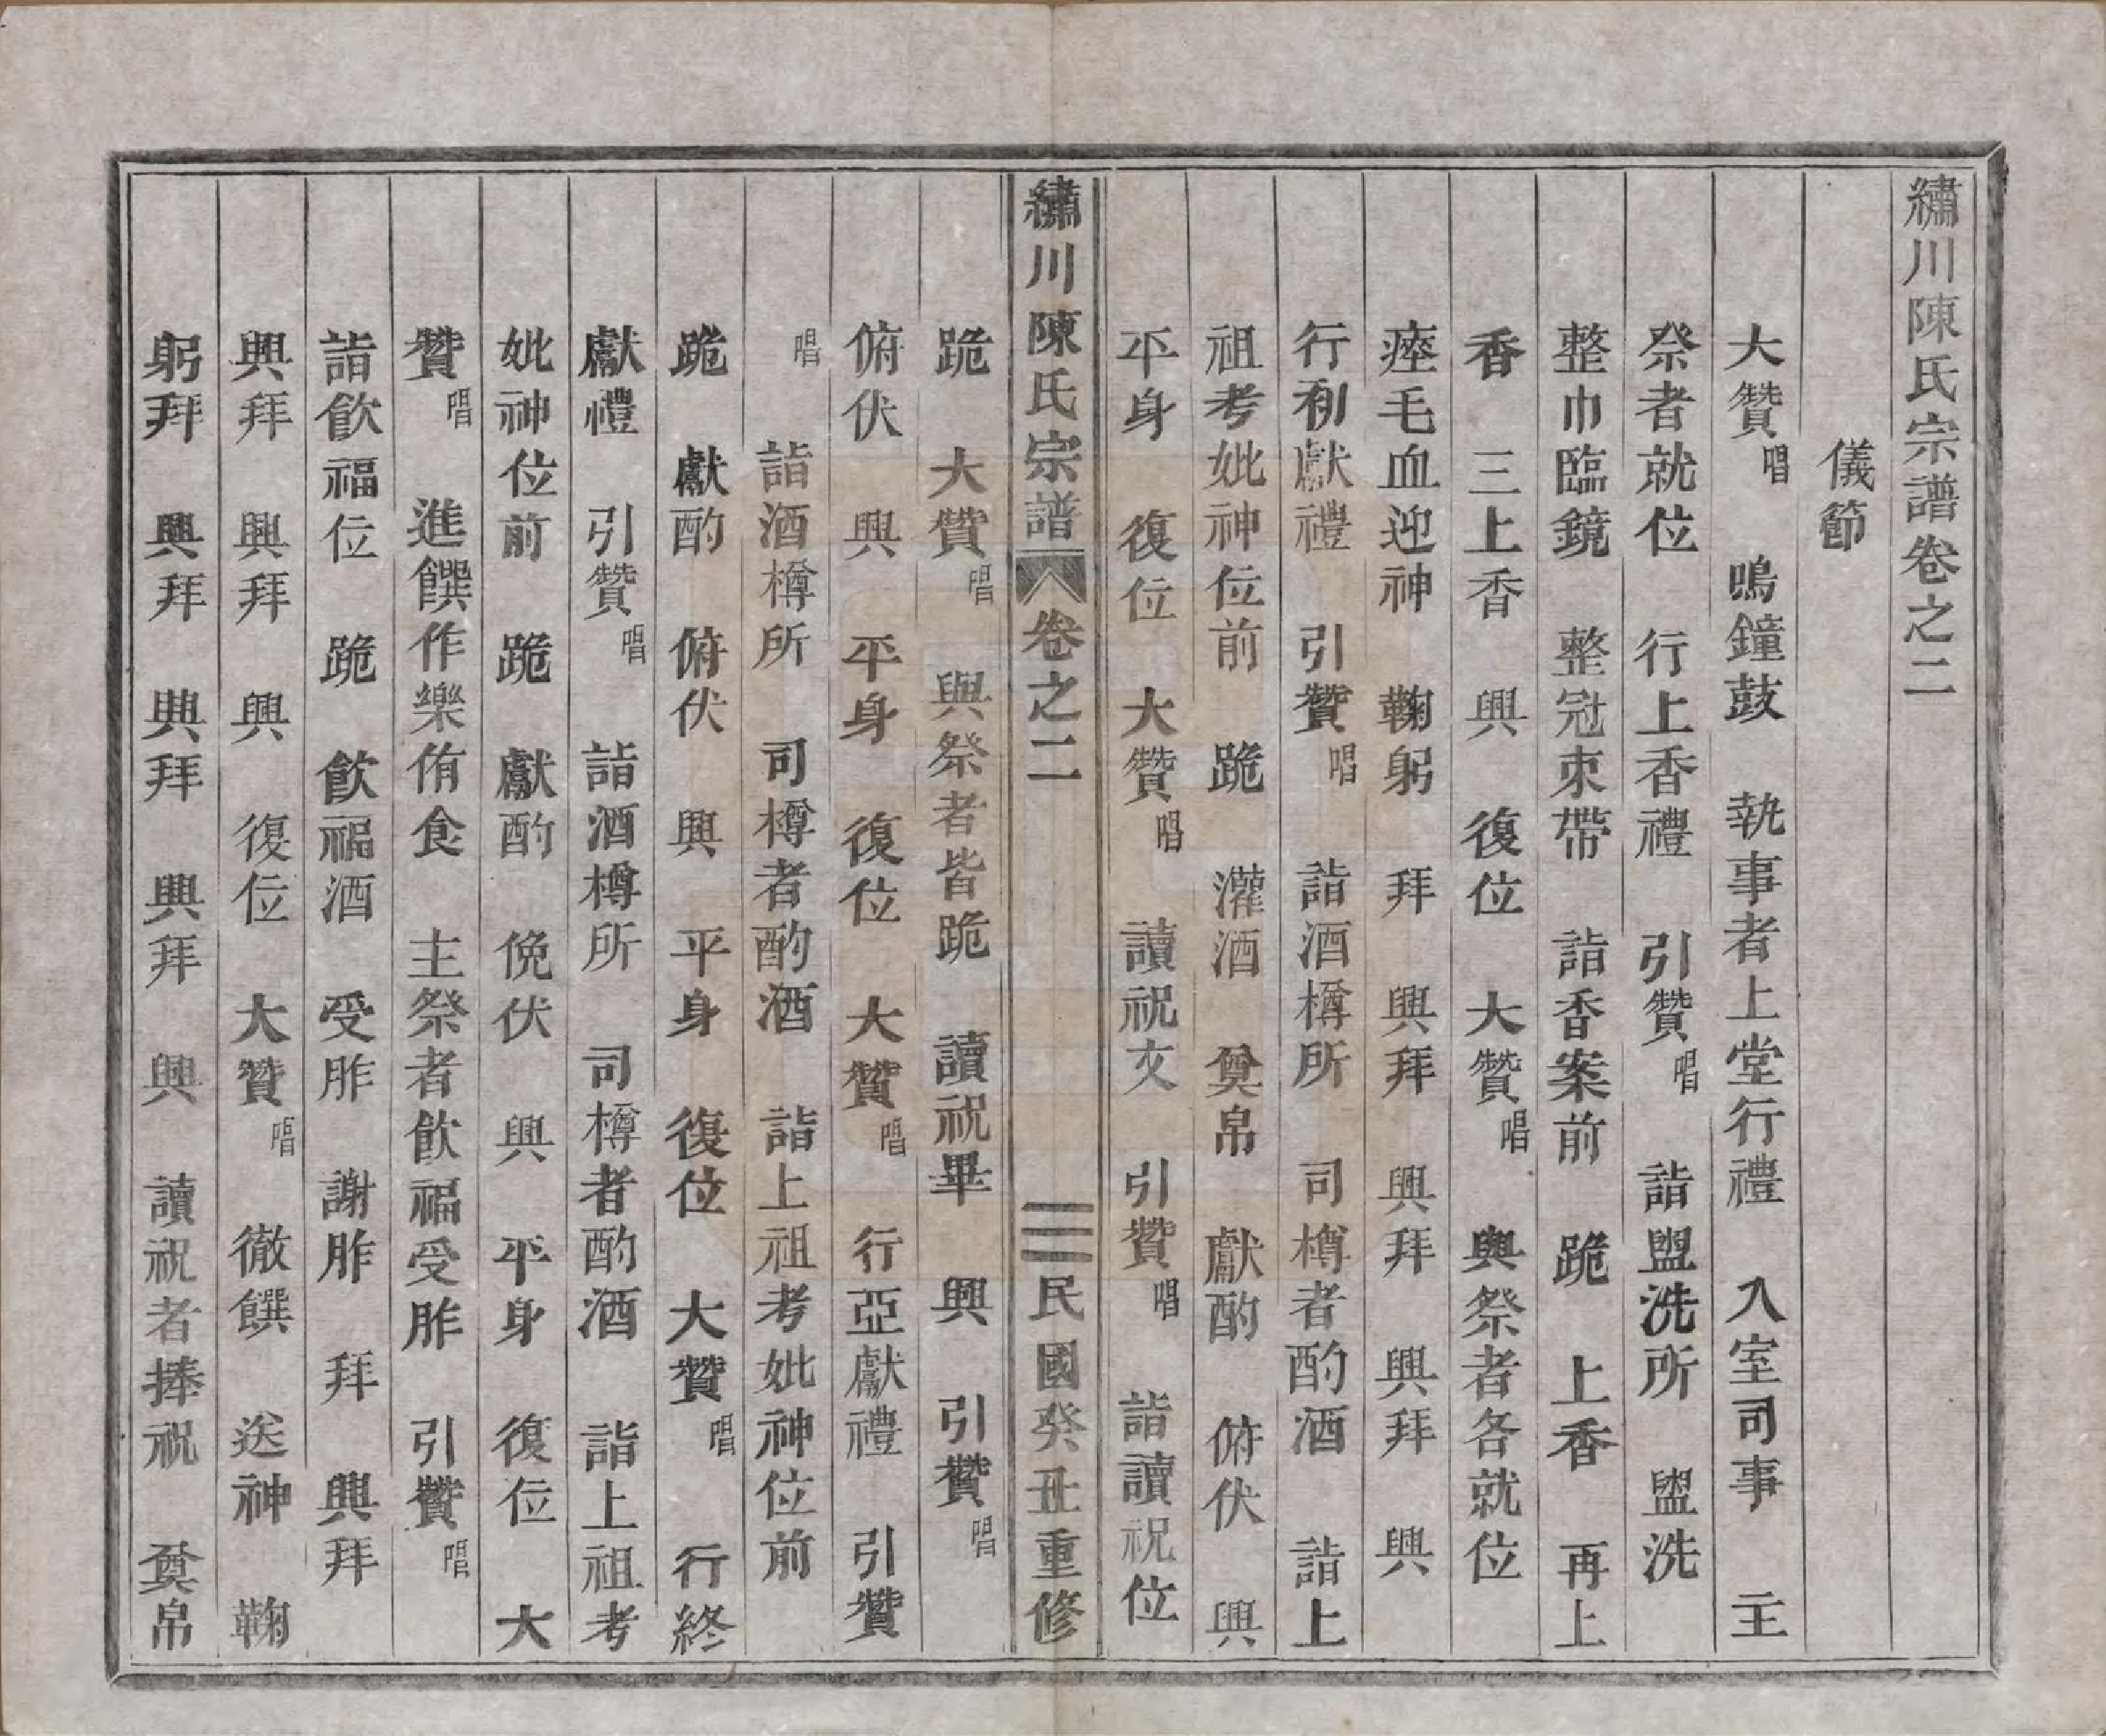 繡川陳氏宗譜卷之二
儀節
大贊唱 鳴鐘鼓 執事者上堂行禮 入室司事 主
祭者就位 行上香禮 引贊唱 詣盥洗所 盥洗
整巾臨鏡 整冠束帶 詣香案前 跪 上香 再上
香 三上香 興 復位 大贊唱 與祭者各就位
瘞毛血迎神 鞠躬 拜 興拜 興拜 興拜 興
行初獻禮 引贊唱 詣酒樽所 司樽者酌酒 詣上
祖考妣神位前 跪 灌酒 奠帛 獻酌 俯伏 興
平身 復位 大贊唱 讀祝文 引贊唱 詣讀祝位
繡川陳氏宗譜 卷之二 三 民國癸丑重修
跪 大贊唱 與祭者皆跪 讀祝畢 興 引贊唱
俯伏 興 平身 復位 大贊唱 行亞獻禮 引贊
唱 詣酒樽所 司樽者酌酒 詣上祖考妣神位前
跪 獻酌 俯伏 興 平身 復位 大贊唱 行終
獻禮 引贊唱 詣酒樽所 司樽者酌酒 詣上祖考
妣神位前 跪 獻酌 俛伏 興 平身 復位 大
贊唱 進饌作樂侑食 主祭者飲福受胙 引贊唱
詣飲福位 跪 飲福酒 受胙 謝胙 拜 興拜
興拜 興拜 興 復位 大贊唱 徹饌 送神 鞠
躬拜 興拜 興拜 興拜 興 讀祝者捧祝 奠帛